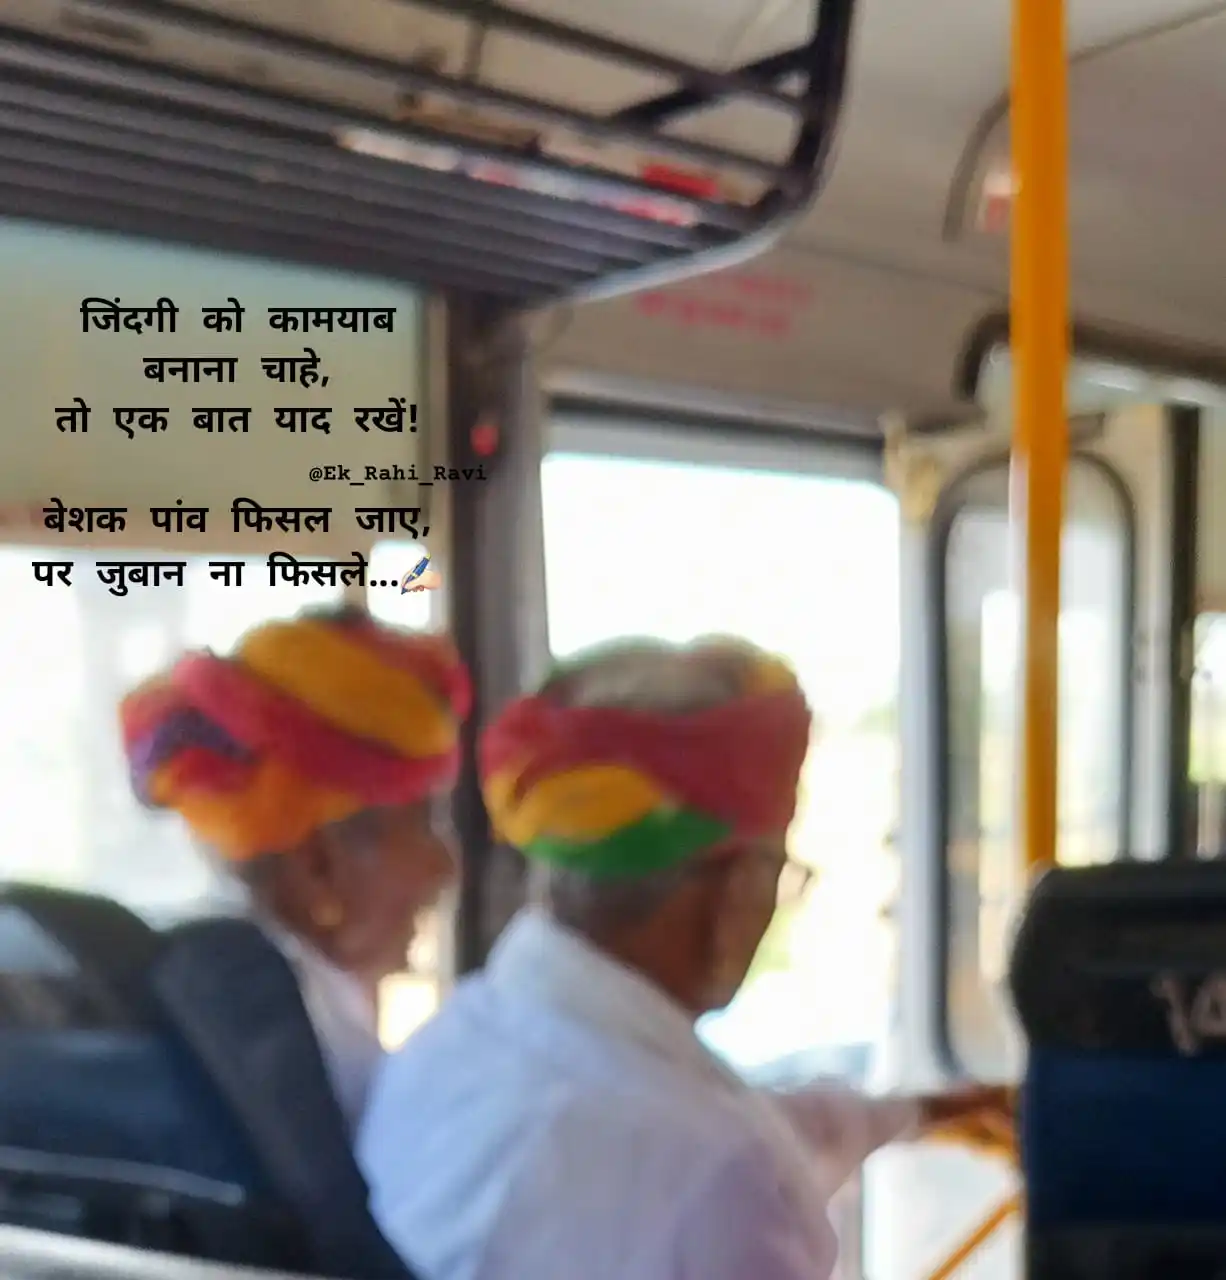 जिंदगी को कामयाब
बनाना चाहे,
तो एक बात याद रखें!
@Ek_Rahi_Ravi
बेशक पांव फिसल जाए,
पर जुबान ना फिसले...✍🏻